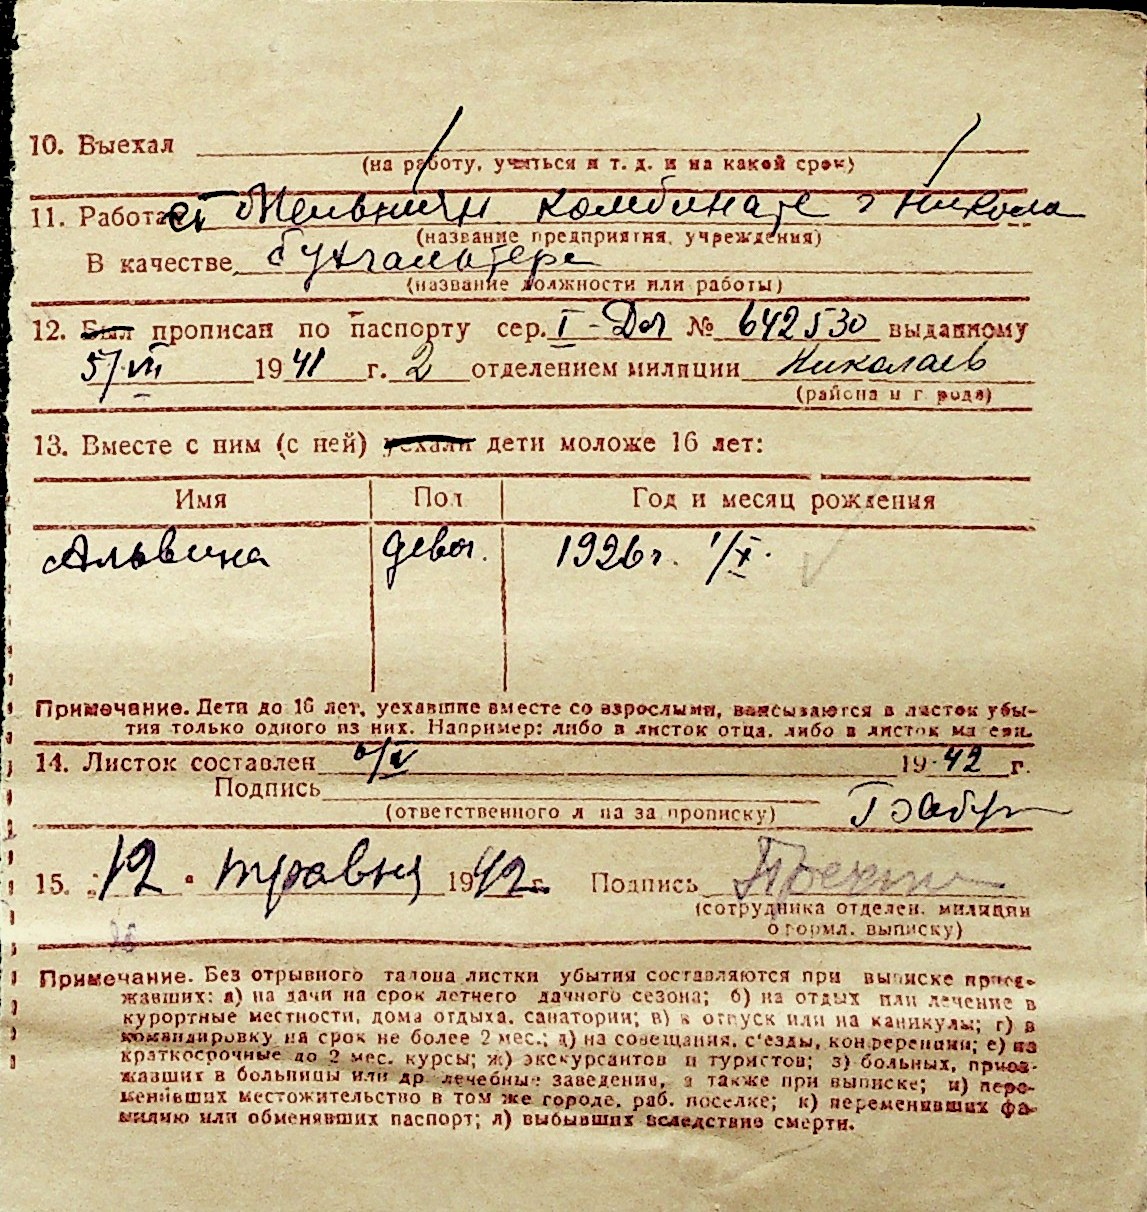 10. Выехал
(на работу, учиться и т. д. и на какой срок)
11. Работает комбинате г Никола
(название предприятия, учреждения)
В качестве бухгалтера
(название должности или работы)
12. Был прописан по паспорту сер. I-Дол № 642530 выданному
5/VII 1941 г. 2 отделением милиции Николаев
(района и города)
13. Вместе с ним (с ней) уехали дети моложе 16 лет:
Имя Пол Год и месяц рождения
Альвина девоч. 1926 г. 1/X.
Примечание. Дети до 16 лет, уехавшие вместе со взрослыми, вписываются в листок убы-
тия только одного из них. Например: либо в листок отца, либо в листок матери.
14. Листок составлен 6/V 1942 г.
Подпись
(ответственного лица за прописку)
15. „12 " травня 1942 г. Подпись
(сотрудника отделен. милиции
оформл. выписку)
Примечание. Без отрывного талона листки убытия составляются при выписке приез-
жавших: а) на дачи на срок летнего дачного сезона; б) на отдых или лечение в
курортные местности, дома отдыха, санатории; в) в отпуск или на каникулы; г) в
командировку на срок не более 2 мес.; д) на совещания, с'езды, конференции; е) на
краткосрочные до 2 мес. курсы; ж) экскурсантов и туристов; з) больных, приез-
жавших в больницы или др. лечебные заведения, а также при выписке; и) пере-
менивших местожительство в том же городе, раб. поселке; к) переменивших фа-
милию или обменявших паспорт; л) выбывших вследствие смерти.